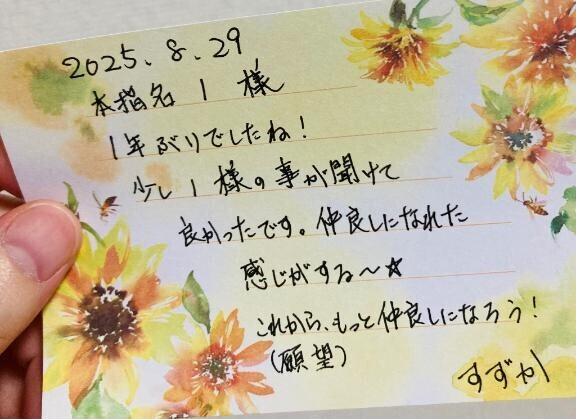 2025.8.29
本指名 1 様
1年ぶりでしたね！
少し1様の事が聞けて
良かったです。仲良しになれた
感じがする〜☆
これから、もっと仲良しになろう！
(願望)
すずか